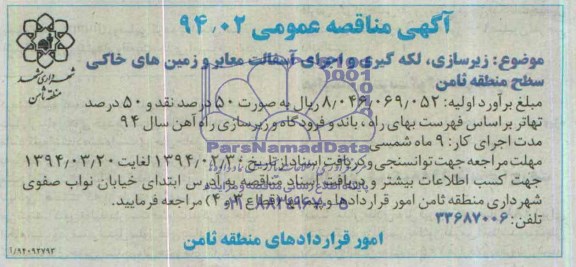 آگهی مناقصه عمومی ۹۴٫۰۲
شهرداری مشهد
منطقه ثامن
موضوع: زیرسازی، لکه گیری و اجرای آسفالت معابر و زمین های خاکی
سطح منطقه ثامن
مبلغ برآورد اولیه: ۸٫۰۴۶٫۰۶۹٫۰۵۲ ریال به صورت ۵۰ درصد نقد و ۵۰ درصد
تهاتر براساس فهرست بهای راه، باند و فرودگاه و زیرسازی راه آهن سال ۹۴
مدت اجرای کار: ۹ ماه شمسی
ParsNamadData
مهلت مراجعه جهت توانسنجی و دریافت اسناد از تاریخ: ۱۳۹۴٫۰۲٫۳۰ لغایت ۱۳۹۴٫۰۳٫۲۰
جهت کسب اطلاعات بیشتر و دریافت اسناد مناقصه به آدرس ابتدای خیابان نواب صفوی
شهرداری منطقه ثامن امور قراردادها و پیمانها (قطاع ۳ و ۴) مراجعه فرمایید.
تلفن: ۳۳۶۸۷۰۰۶
امور قراردادهای منطقه ثامن
۱/۹۴۰۹۲۷۹۳